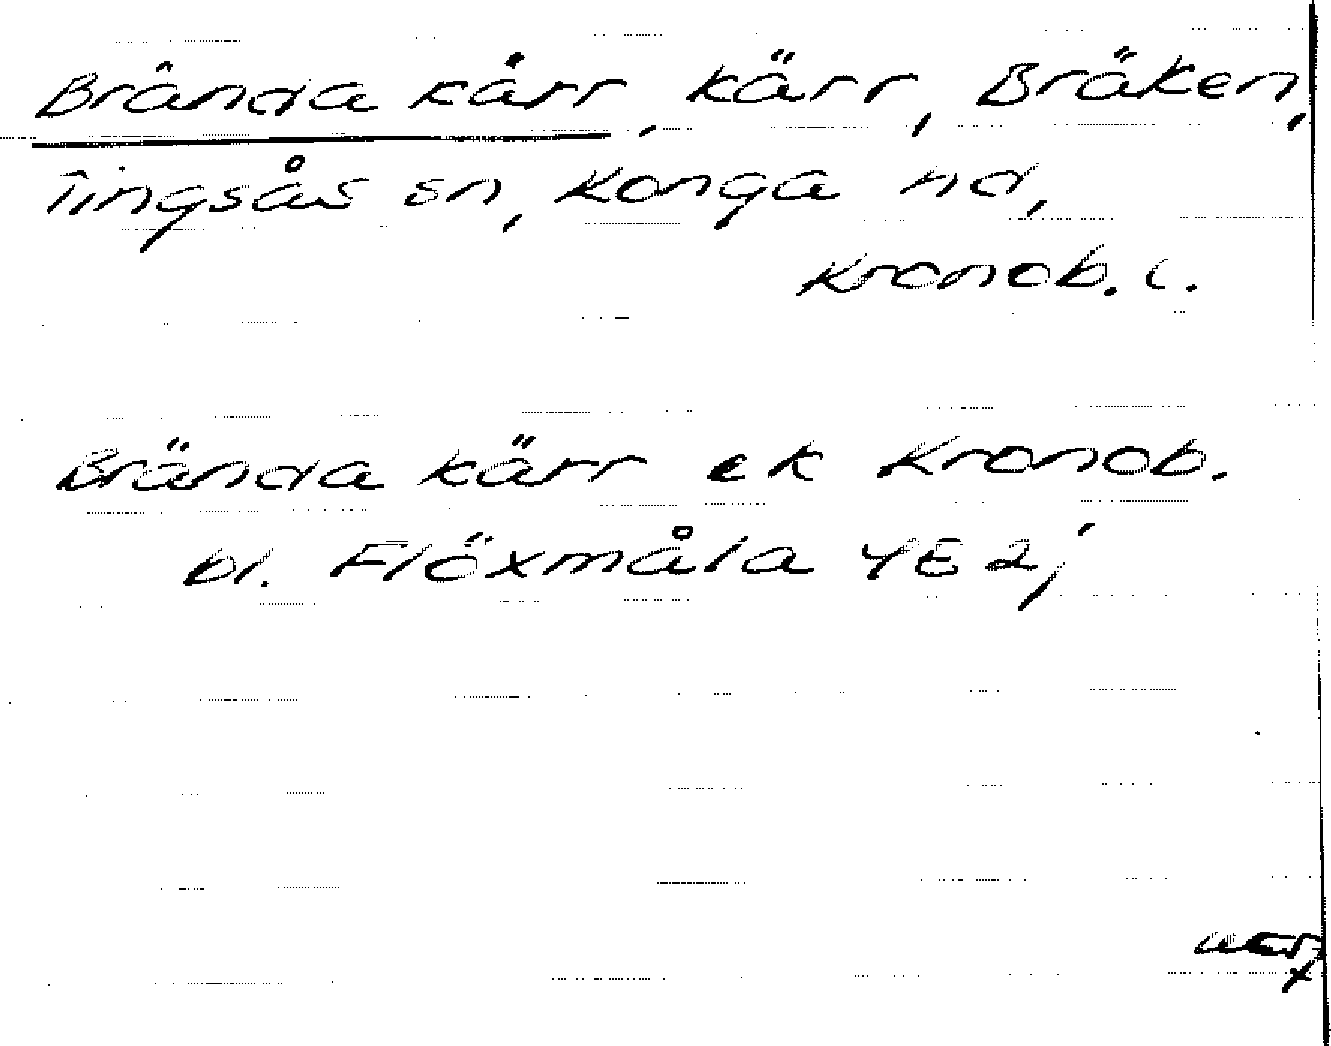 Brända kärr, kärr, Bräken,
Tingsås sn, Konga hd,
Kronob. l.
Brända kärr ek Kronob.
bl. Flöxmåla 4E 2;